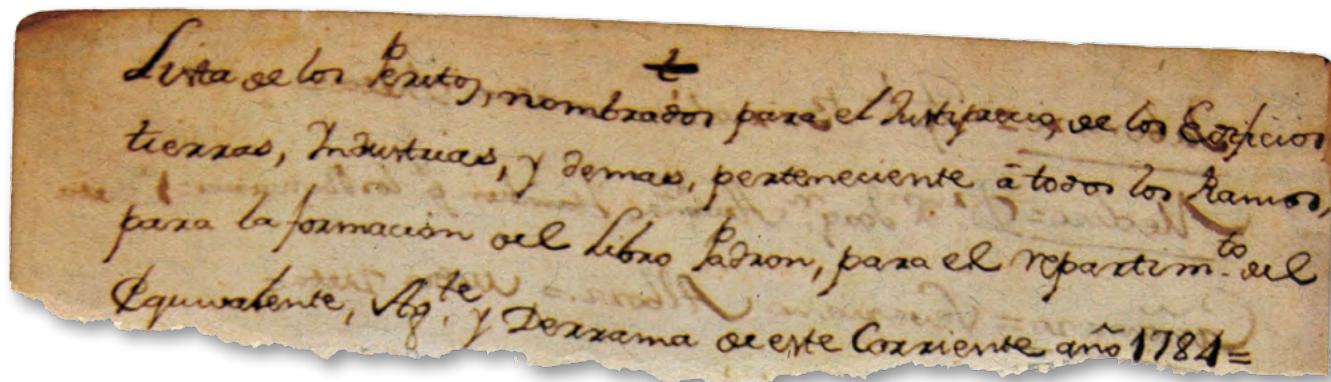 Lista de los Peritos, nombrados para el Justiprecio, de los Edificios
tierras, Yndustrias, y demas, perteneciente â todos los Ramos,
para la formacion del Libro Padron, para el repartim.to del
Equivalente, Ag.te y Derrama de este Corriente año 1784=